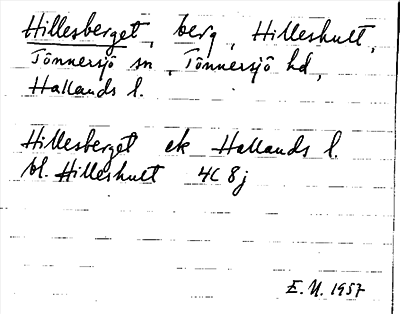 Hillesberget, berg, Hilleshult,
Tönnersjö sn, Tönnersjö hd,
Hallands l.
Hillesberget ek Hallands l.
bl. Hilleshult 4C 8j
E.N. 1957